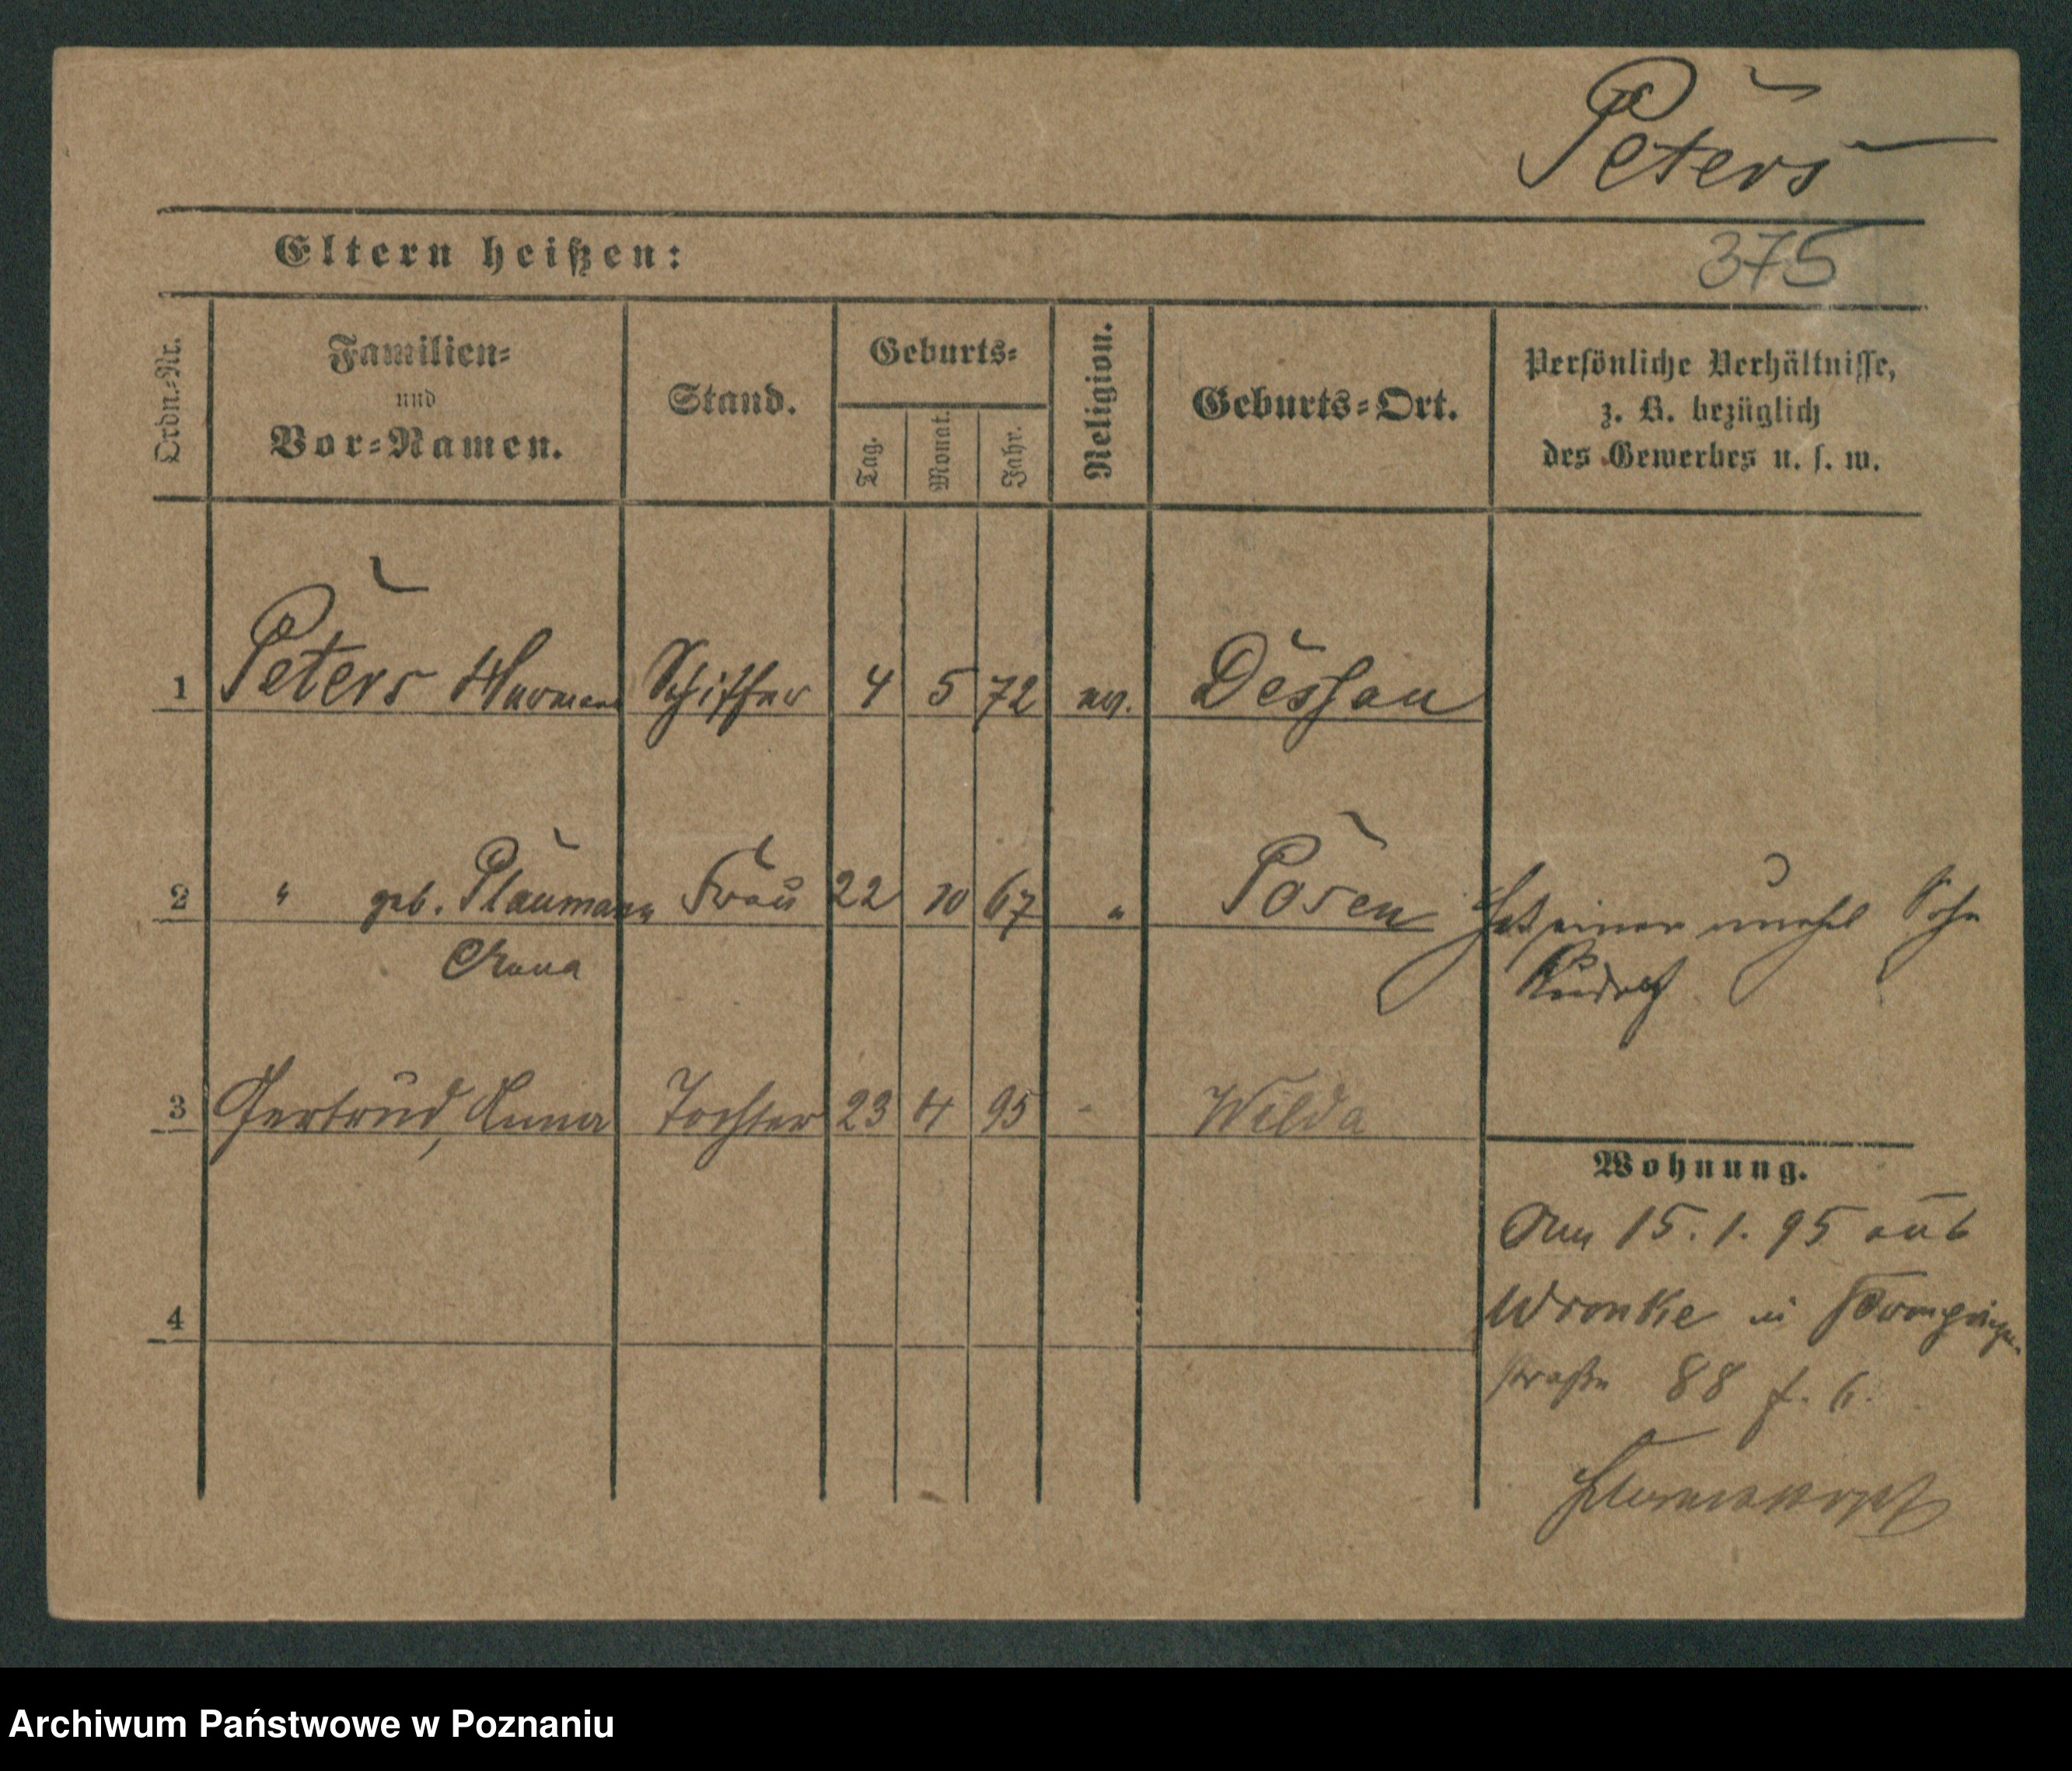 Peters
375
Eltern heißen:
Ordn.-Nr.
Familien-
und
Vor-Namen.
Stand.
Geburts-
Tag.
Monat.
Jahr.
Religion.
Geburts-Ort.
Persönliche Verhältnisse,
z. B. bezüglich
des Gewerbes u. s. w.
1 Peters Hermann Schiffer 4 5 72 ev. Dessau
2 " geb. Plaumann Frau 22 10 67 " Posen Hat einen unehel Sohn
Anna
Rudolf
3 Gertrud, Anna Tochter 23 4 95 - Wilda
Wohnung.
Am 15.1.95 aus
Wronke in Kronprinzen-
straße 88 f. 6.
4
Archiwum Państwowe w Poznaniu